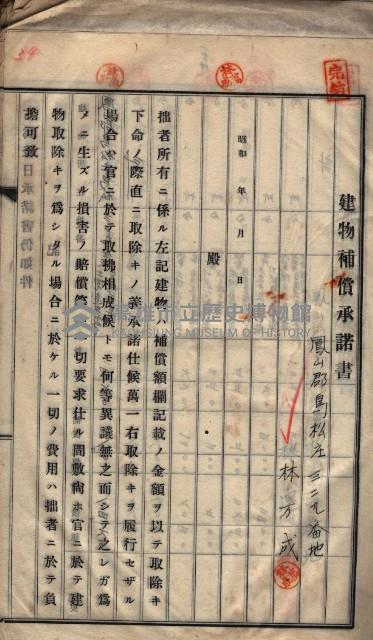 建物補償承諾書
鳳山郡鳥松庄三二九番地
林万成
昭和　年　月　日
殿
拙者所有ニ係ル左記建物ハ補償額欄記載ノ金額ヲ以テ取除キ
下命ノ際直ニ取除キノ義承諾仕候萬一右取除キヲ履行セザル
場合ハ官ニ於テ取拂相成候トモ何等異議無之而シテ之レガ爲
メニ生ズル損害ノ賠償等一切要求仕ル間敷尙ホ官ニ於テ建
物取除キヲ爲シタル場合ニ於ケル一切ノ費用ハ拙者ニ於テ負
擔可致日承諾書仍如件
高雄市立歷史博物館
KAOHSIUNG MUSEUM OF HISTORY